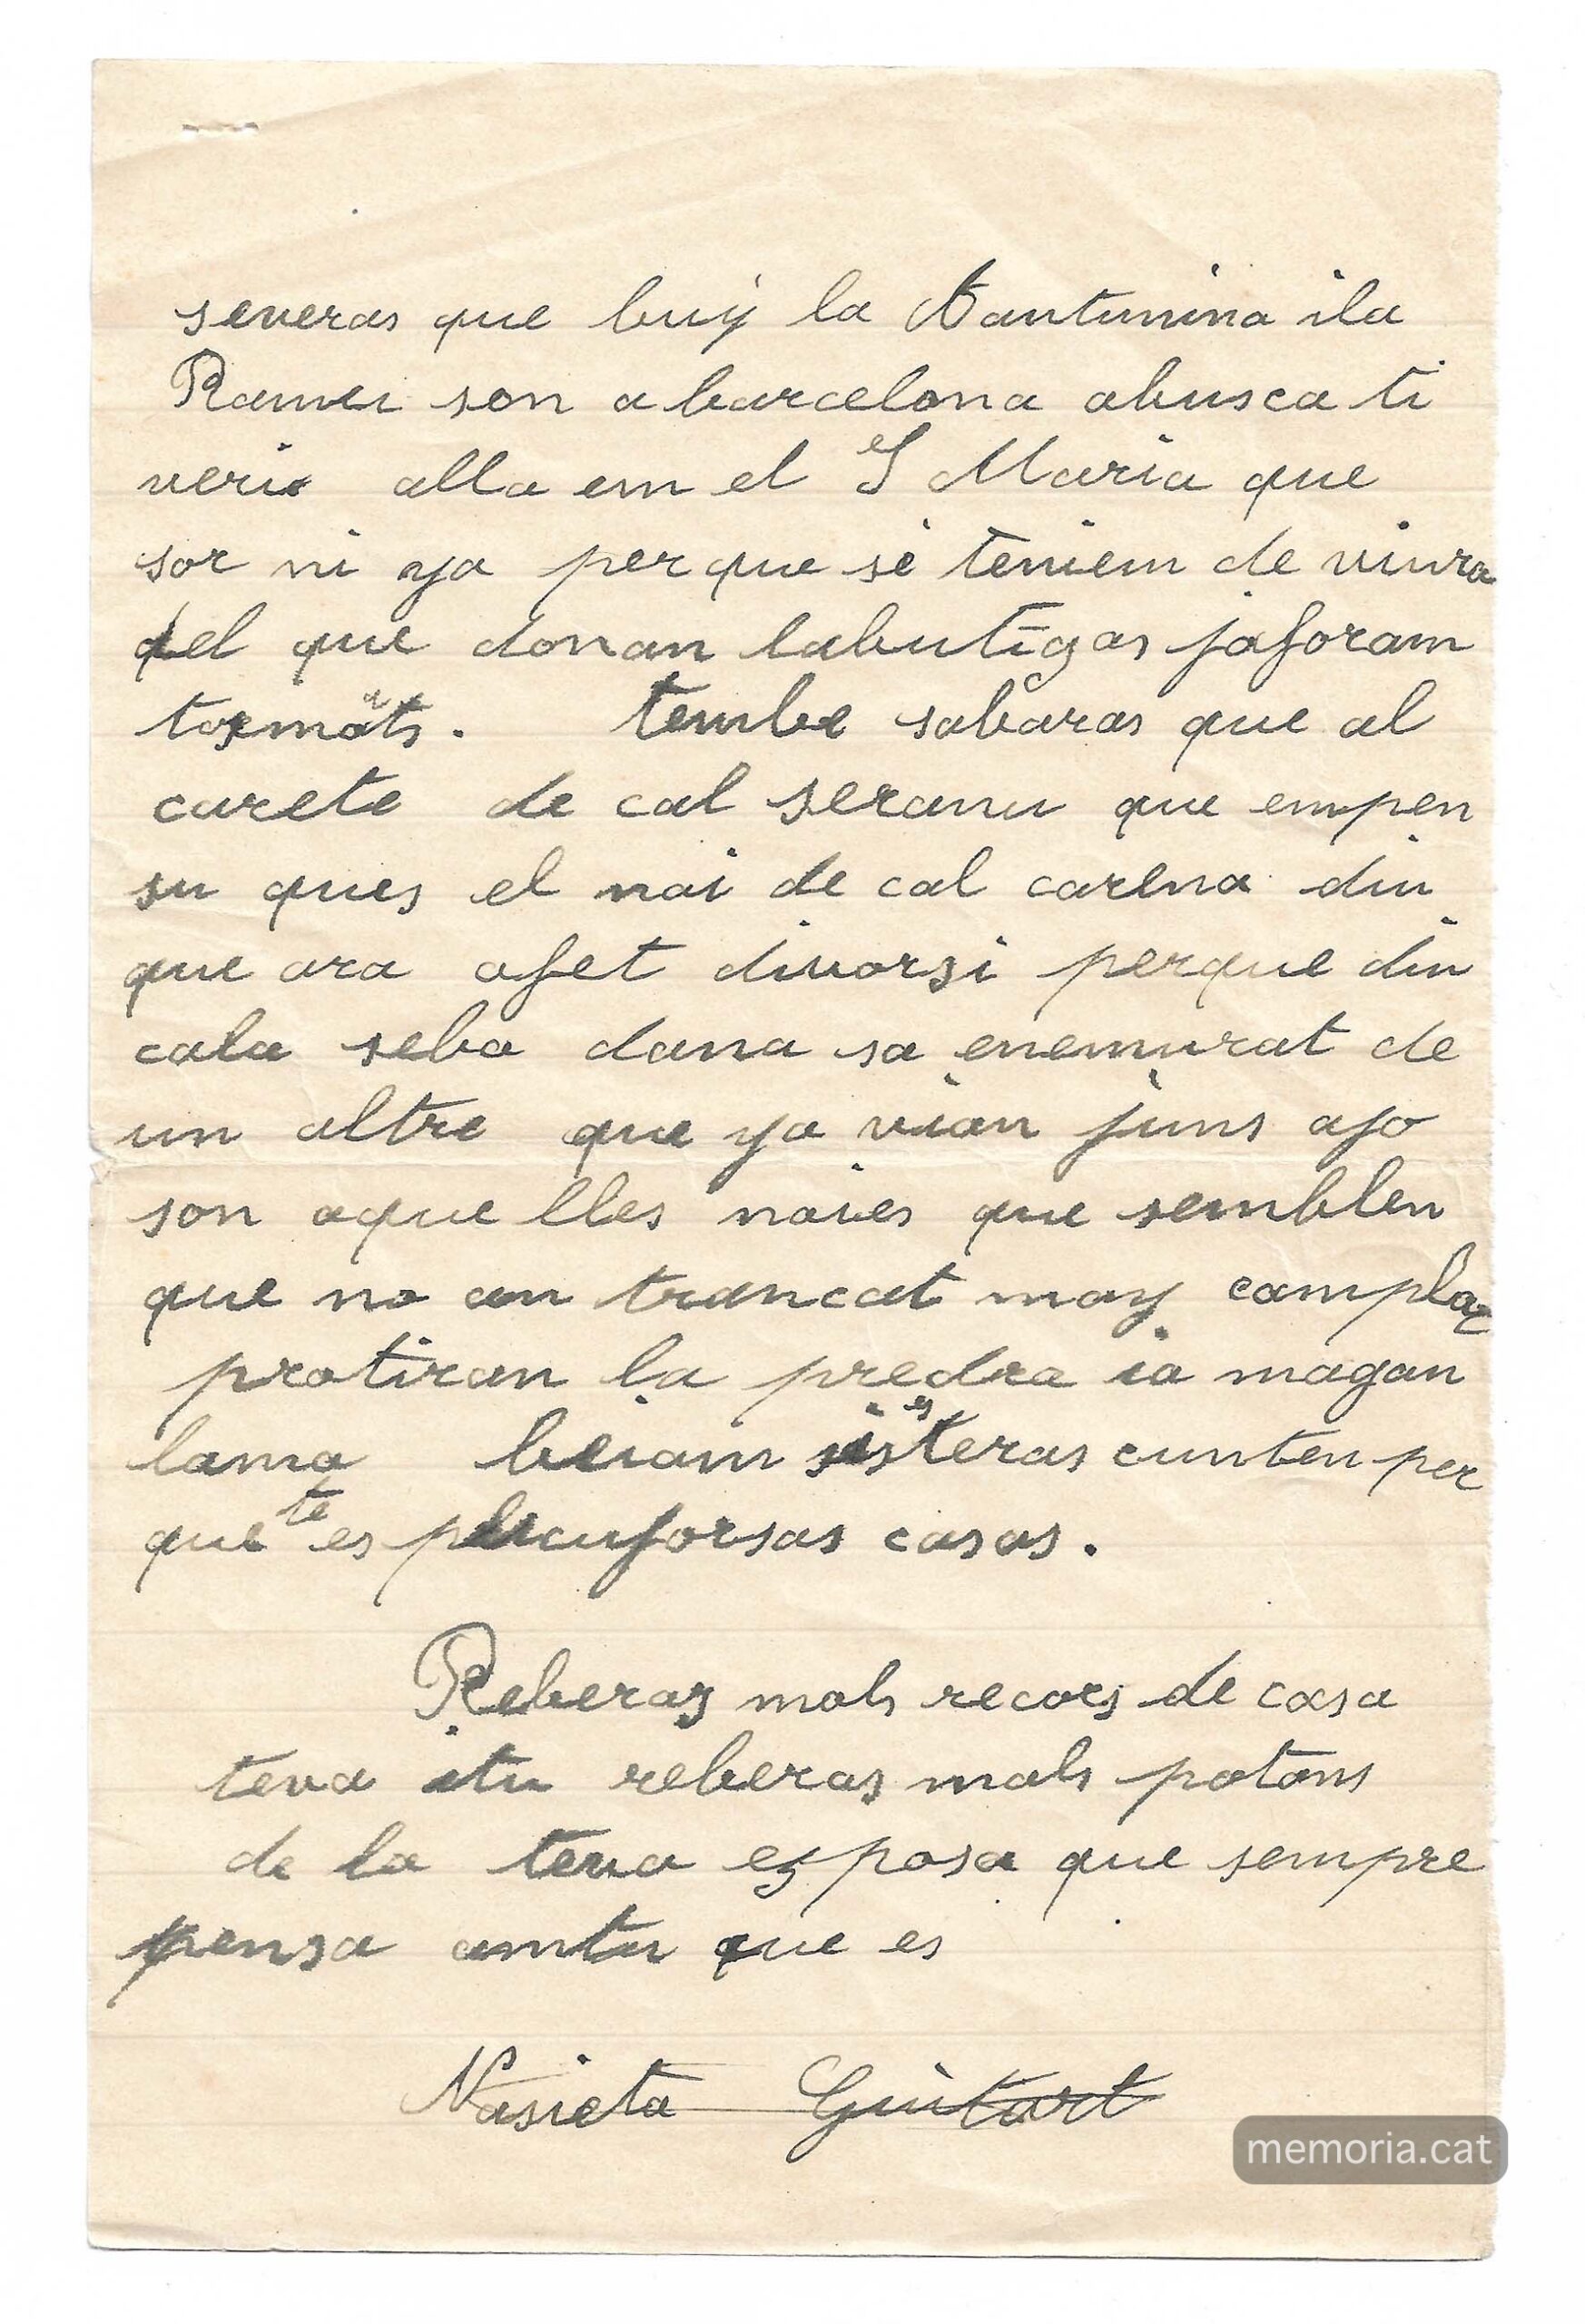 severas que buy la tantunina ila
Ramu son a barcelona abusca ti
veris alla em el S Maria que
sor ni ya per que si teniem de viura
del que donan labutigas jaforam
tots mats. tembe sabaras que al
carete de cal seranu que empen
su ques el noi de cal carena diu
que ara afet divorsi perque diu
cala seba dana sa enemurat de
un altre que ya vian juns ajo
son aque lles noies que semblen
que no an trancat may camplaz
protiran la predra ia magan
lama beiam si esteras cunten per
que te es plicuforsas casas.
Reberas mols recors de casa
teva itu reberas mols potons
de la teva esposa que sempre
pensa amtu que es
Nasieta Guitart
memoria.cat